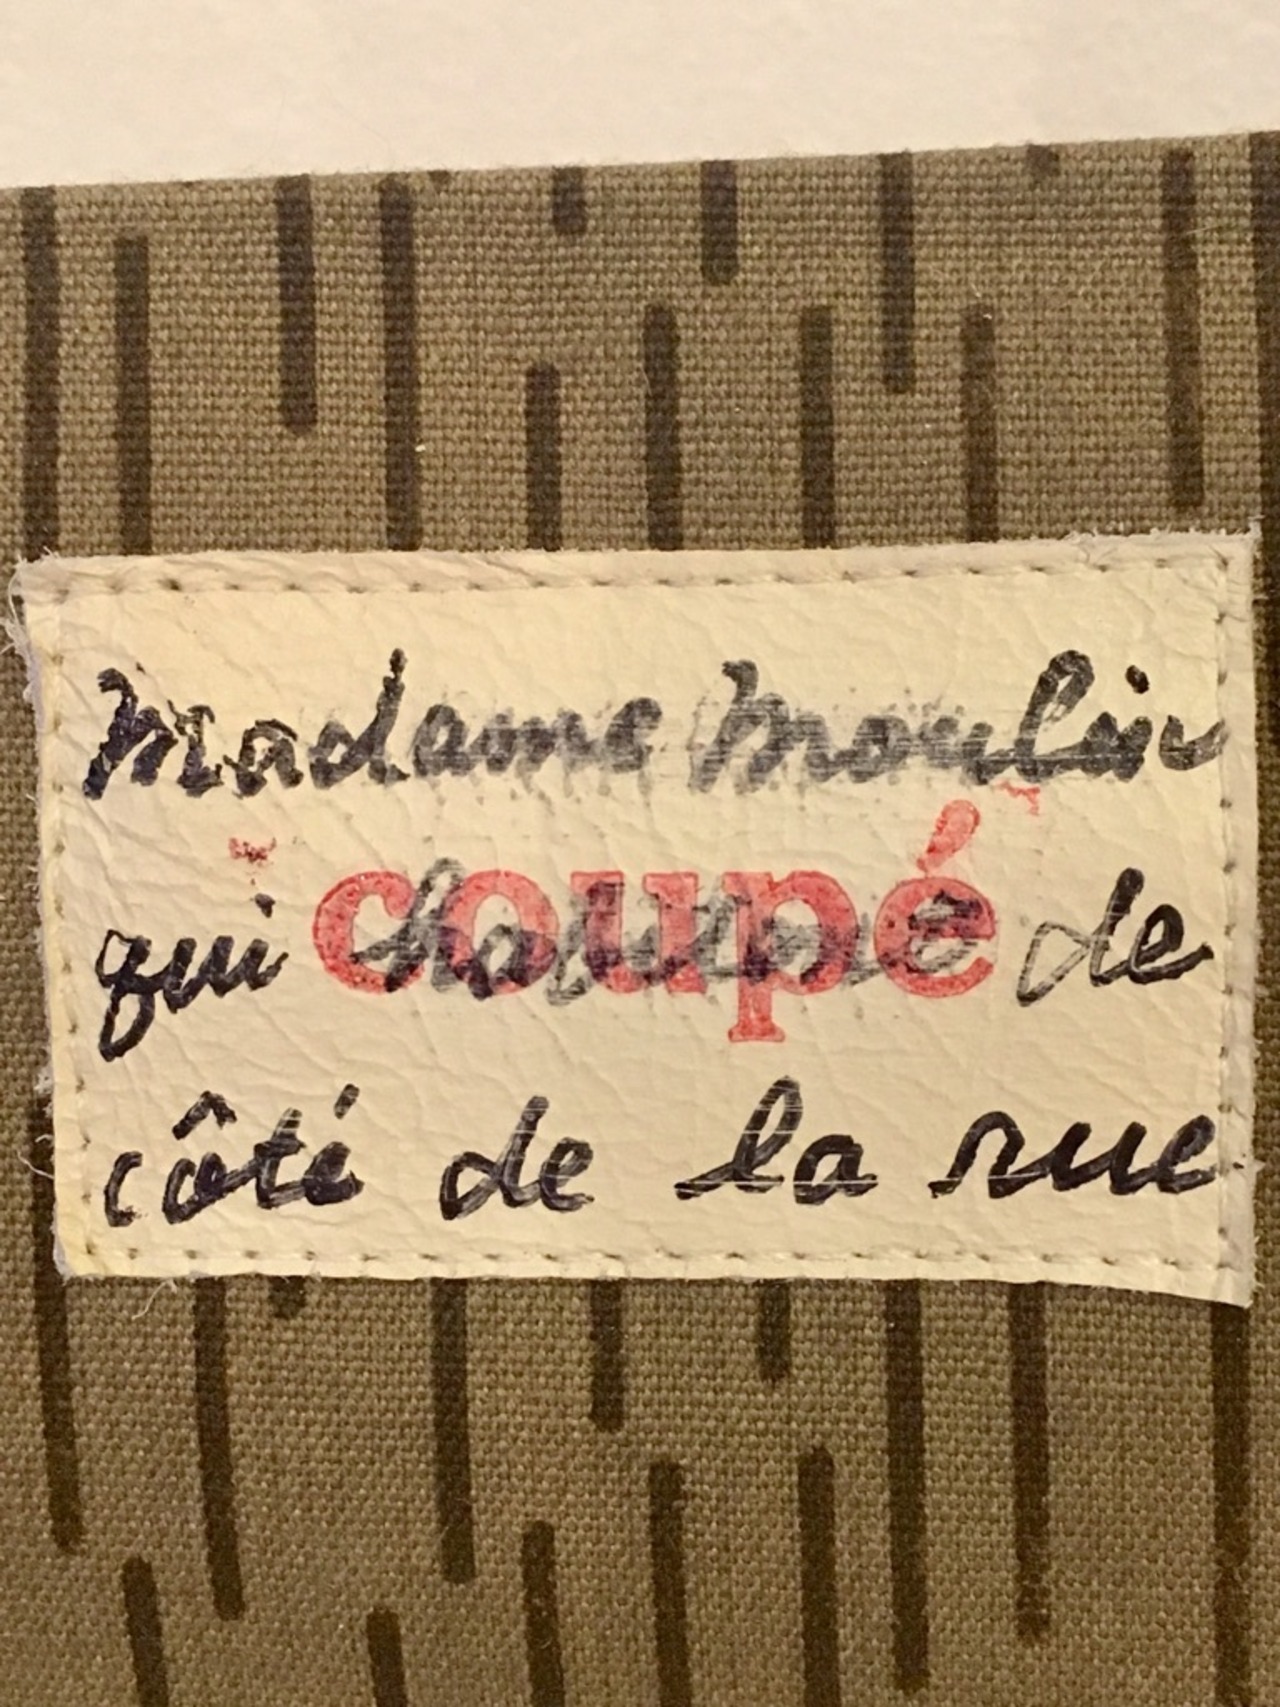 Madame Moulin
coupé
qui de
côté de la rue